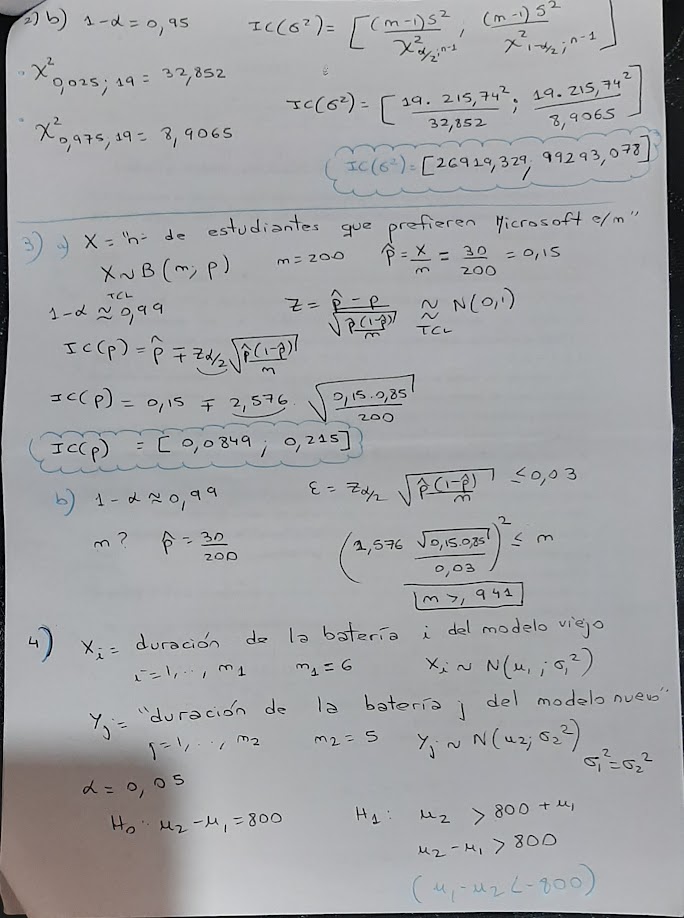 2) b) 1-α = 0,95 IC(σ²) = [(n-1)S²/χ²α/2;n-1 , (n-1)S²/χ²1-α/2;n-1]
· χ²0,025; 19 = 32,852
IC(σ²) = [19. 215,74²/32,852 ; 19. 215,74²/8,9065]
· χ²0,975, 19 = 8,9065
IC(σ²) = [26919,329, 99293,078]
3) a) X = "nº de estudiantes que prefieren Microsoft e/n"
X ~ B(n; p) n = 200 p̂ = X/n = 30/200 = 0,15
1-α ≈TCL 0,99 Z = (p̂ - p)/√(p̂(1-p̂)/n) ≈TCL N(0,1)
IC(p) = p̂ ∓ zα/2 √(p̂(1-p̂)/n)
IC(p) = 0,15 ∓ 2,576 √(0,15.0,85/200)
IC(p) = [0,0849 ; 0,215]
b) 1-α ≈ 0,99 ε = zα/2 √(p̂(1-p̂)/n) ≤ 0,03
n? p̂ = 30/200 (2,576 √(0,15.0,85)/0,03)² ≤ n
n ≥ 941
4) Xi = duración de la batería i del modelo viejo
i = 1, .., n1 n1 = 6 Xi ~ N(μ1; σ1²)
Yj = "duración de la batería j del modelo nuevo"
j = 1, .., n2 n2 = 5 Yj ~ N(μ2; σ2²)
σ1² = σ2²
α = 0,05
H0: μ2 - μ1 = 800 H1: μ2 > 800 + μ1
μ2 - μ1 > 800
(μ1 - μ2 < -800)